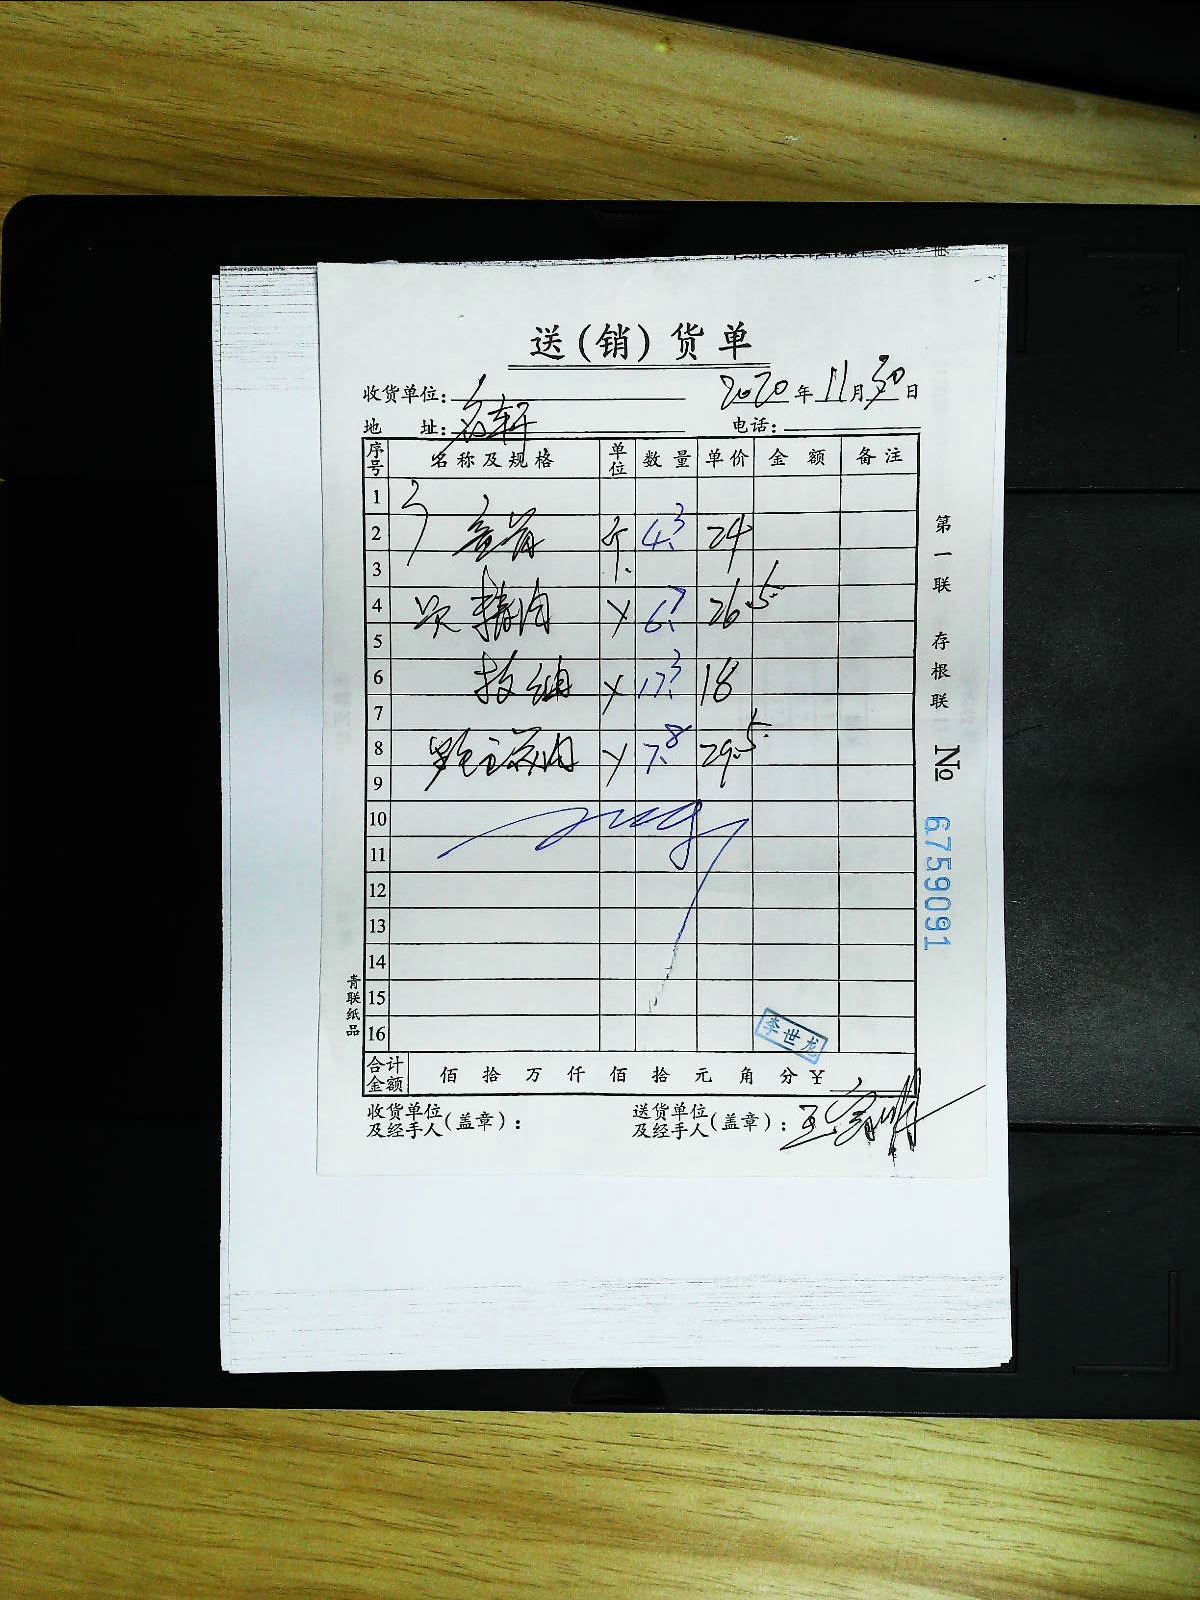 送(销)货单
收货单位: 名轩 2020年11月30日
地 址: 电话:
序号 名称及规格 单位 数量 单价 金额 备注
1
2 斤 4.3 24
3
4 精肉 6.7 26.5
5
6 17.3 18
7
8 7.8 29.5
9
10
11
12
13
14
15
16
合计金额 佰 拾 万 仟 佰 拾 元 角 分 ¥
收货单位及经手人(盖章): 送货单位及经手人(盖章):
李世龙
第一联 存根联 № 6759091
青联纸品